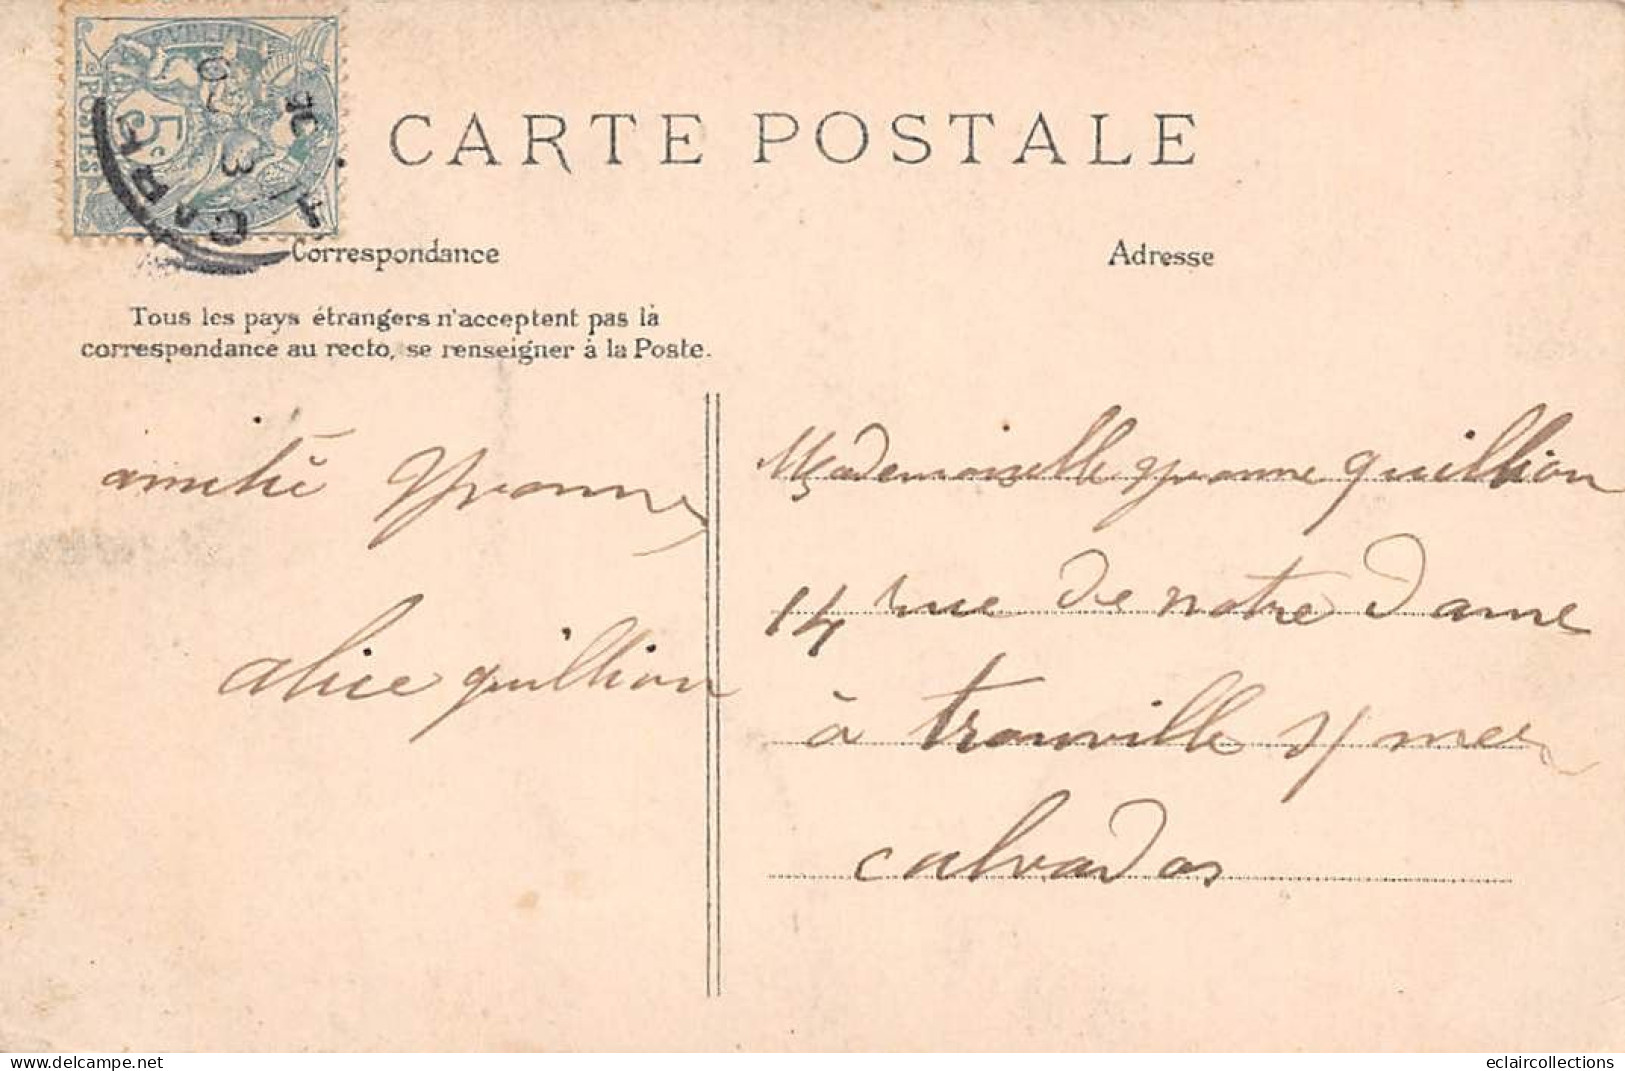 CARTE POSTALE
POSTES
5c
Correspondance
Adresse
Tous les pays étrangers n'acceptent pas la
correspondance au recto, se renseigner à la Poste.
amitié Yvonne
alice quillion
Mademoiselle yvonne quillion
14 rue de notre dame
à trouville s/ mer
calvados
eclaircollections
www.delcampe.net